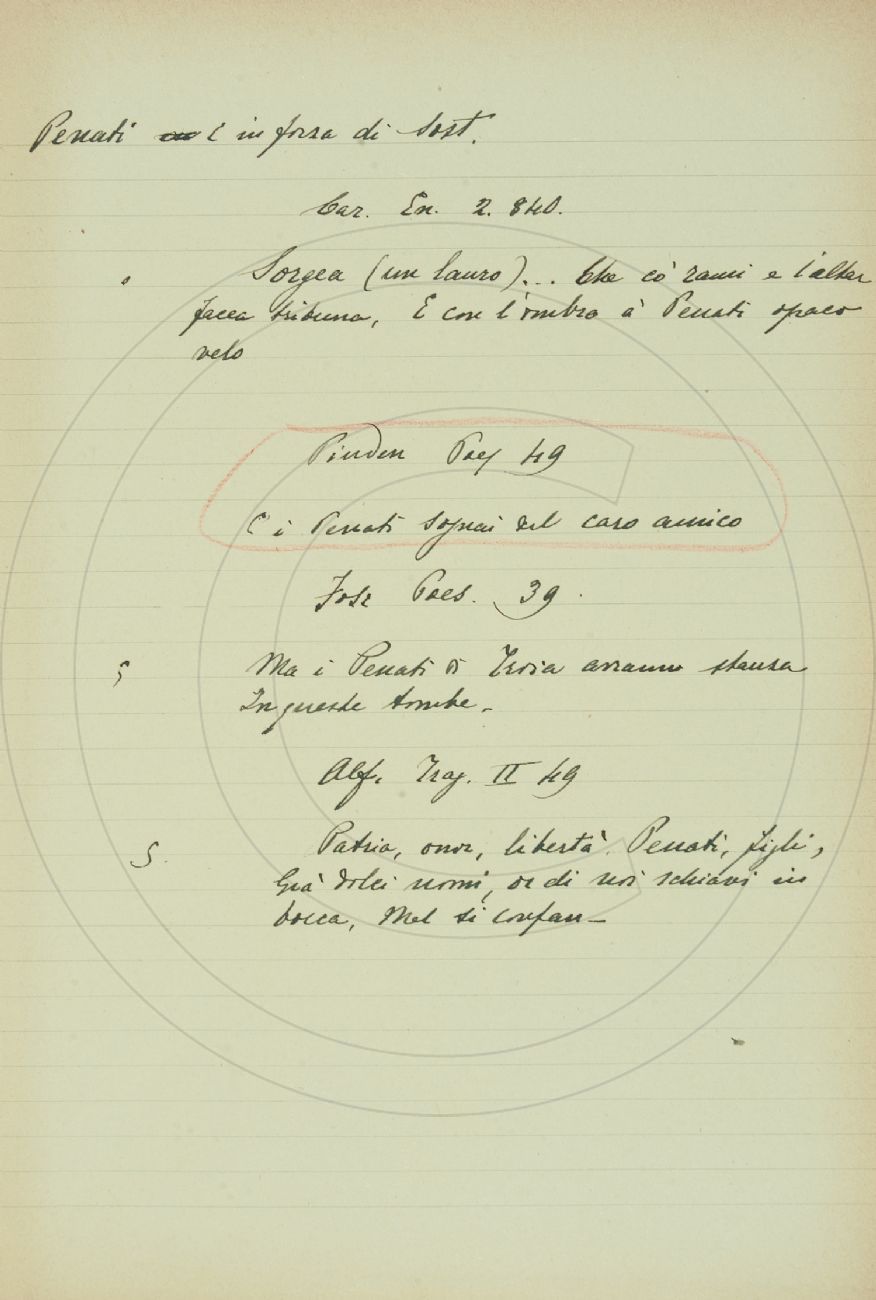 Penati È in forza di Sost.
Car. En. 2. 840.
Sorgea (un lauro)... Che co' rami e l'altar
facea tribuna, E con l'ombra a' Penati opaco
velo
Pindem Poes 49
E i Penati sognai del caro amico
Fosc Poes. 39.
Ma i Penati di Troia avranno stanza
In queste tombe.
Alf. Trag. II 49
Patria, onor, libertà. Penati, figli,
Già dolci nomi, or di noi schiavi in
bocca, Mal si confan—